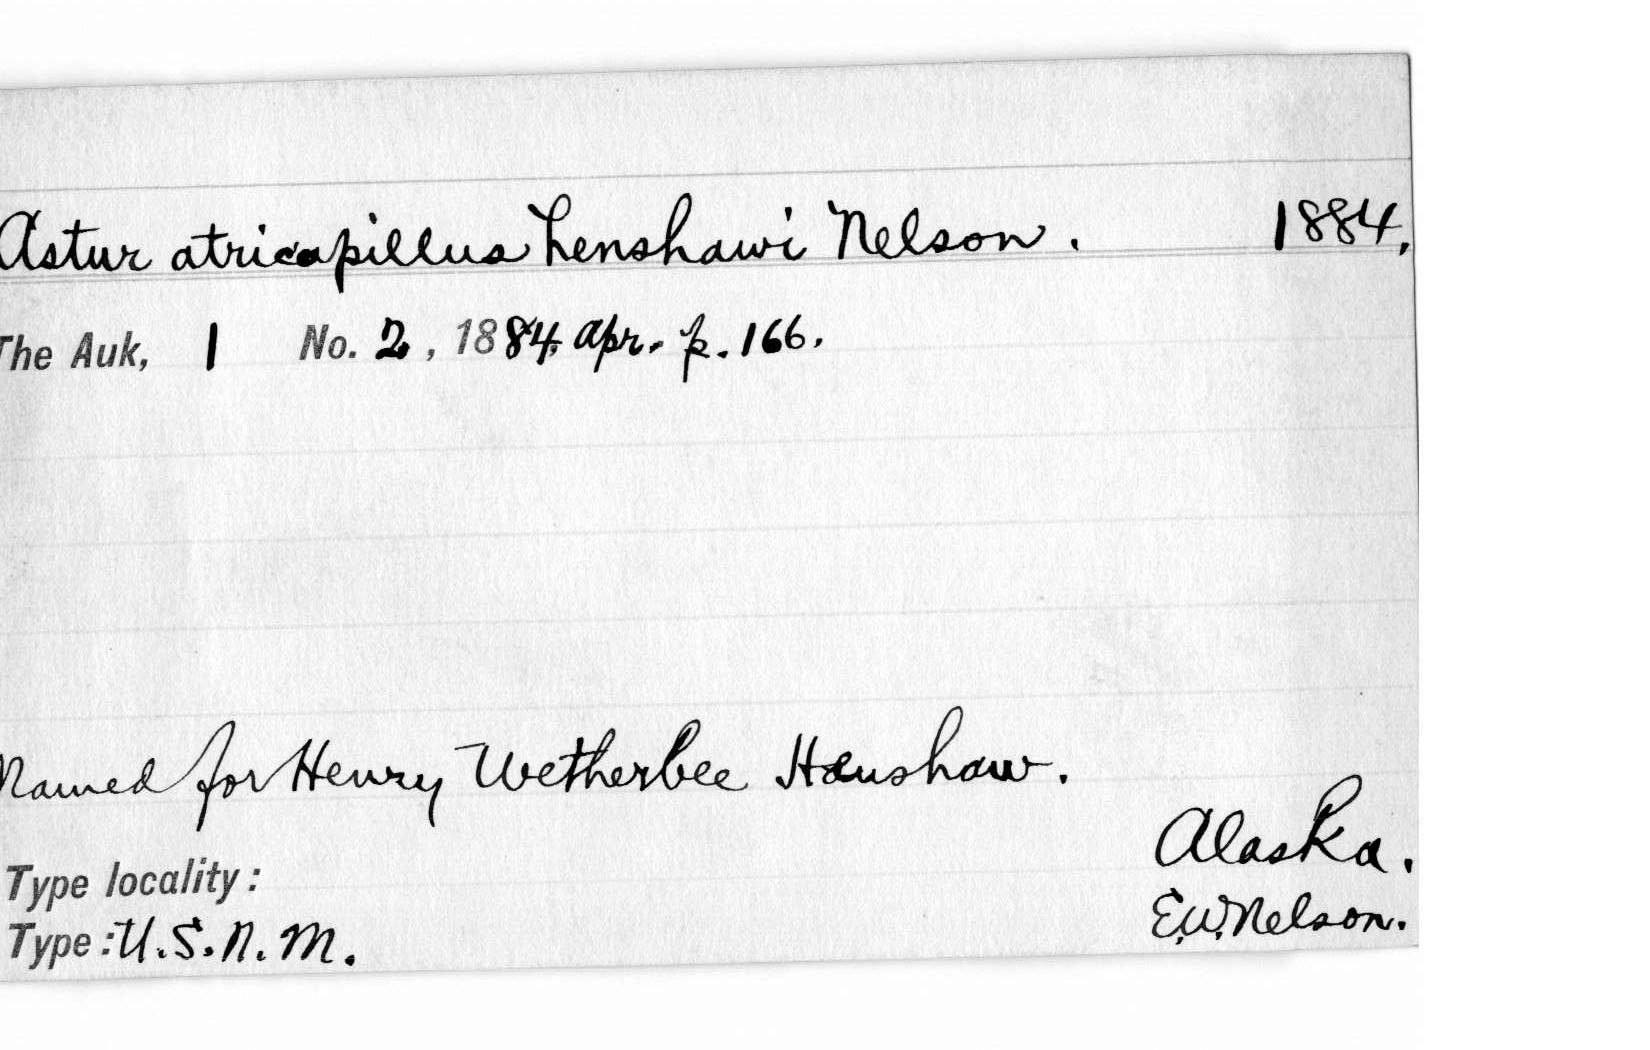 Astur atricapillus henshawi Nelson. 1884.
The Auk, 1 No. 2, 1884, Apr. p. 166.
Named for Henry Wetherbee Henshaw.
Alaska.
Type locality:
E.W. Nelson.
Type: U.S.N.M.